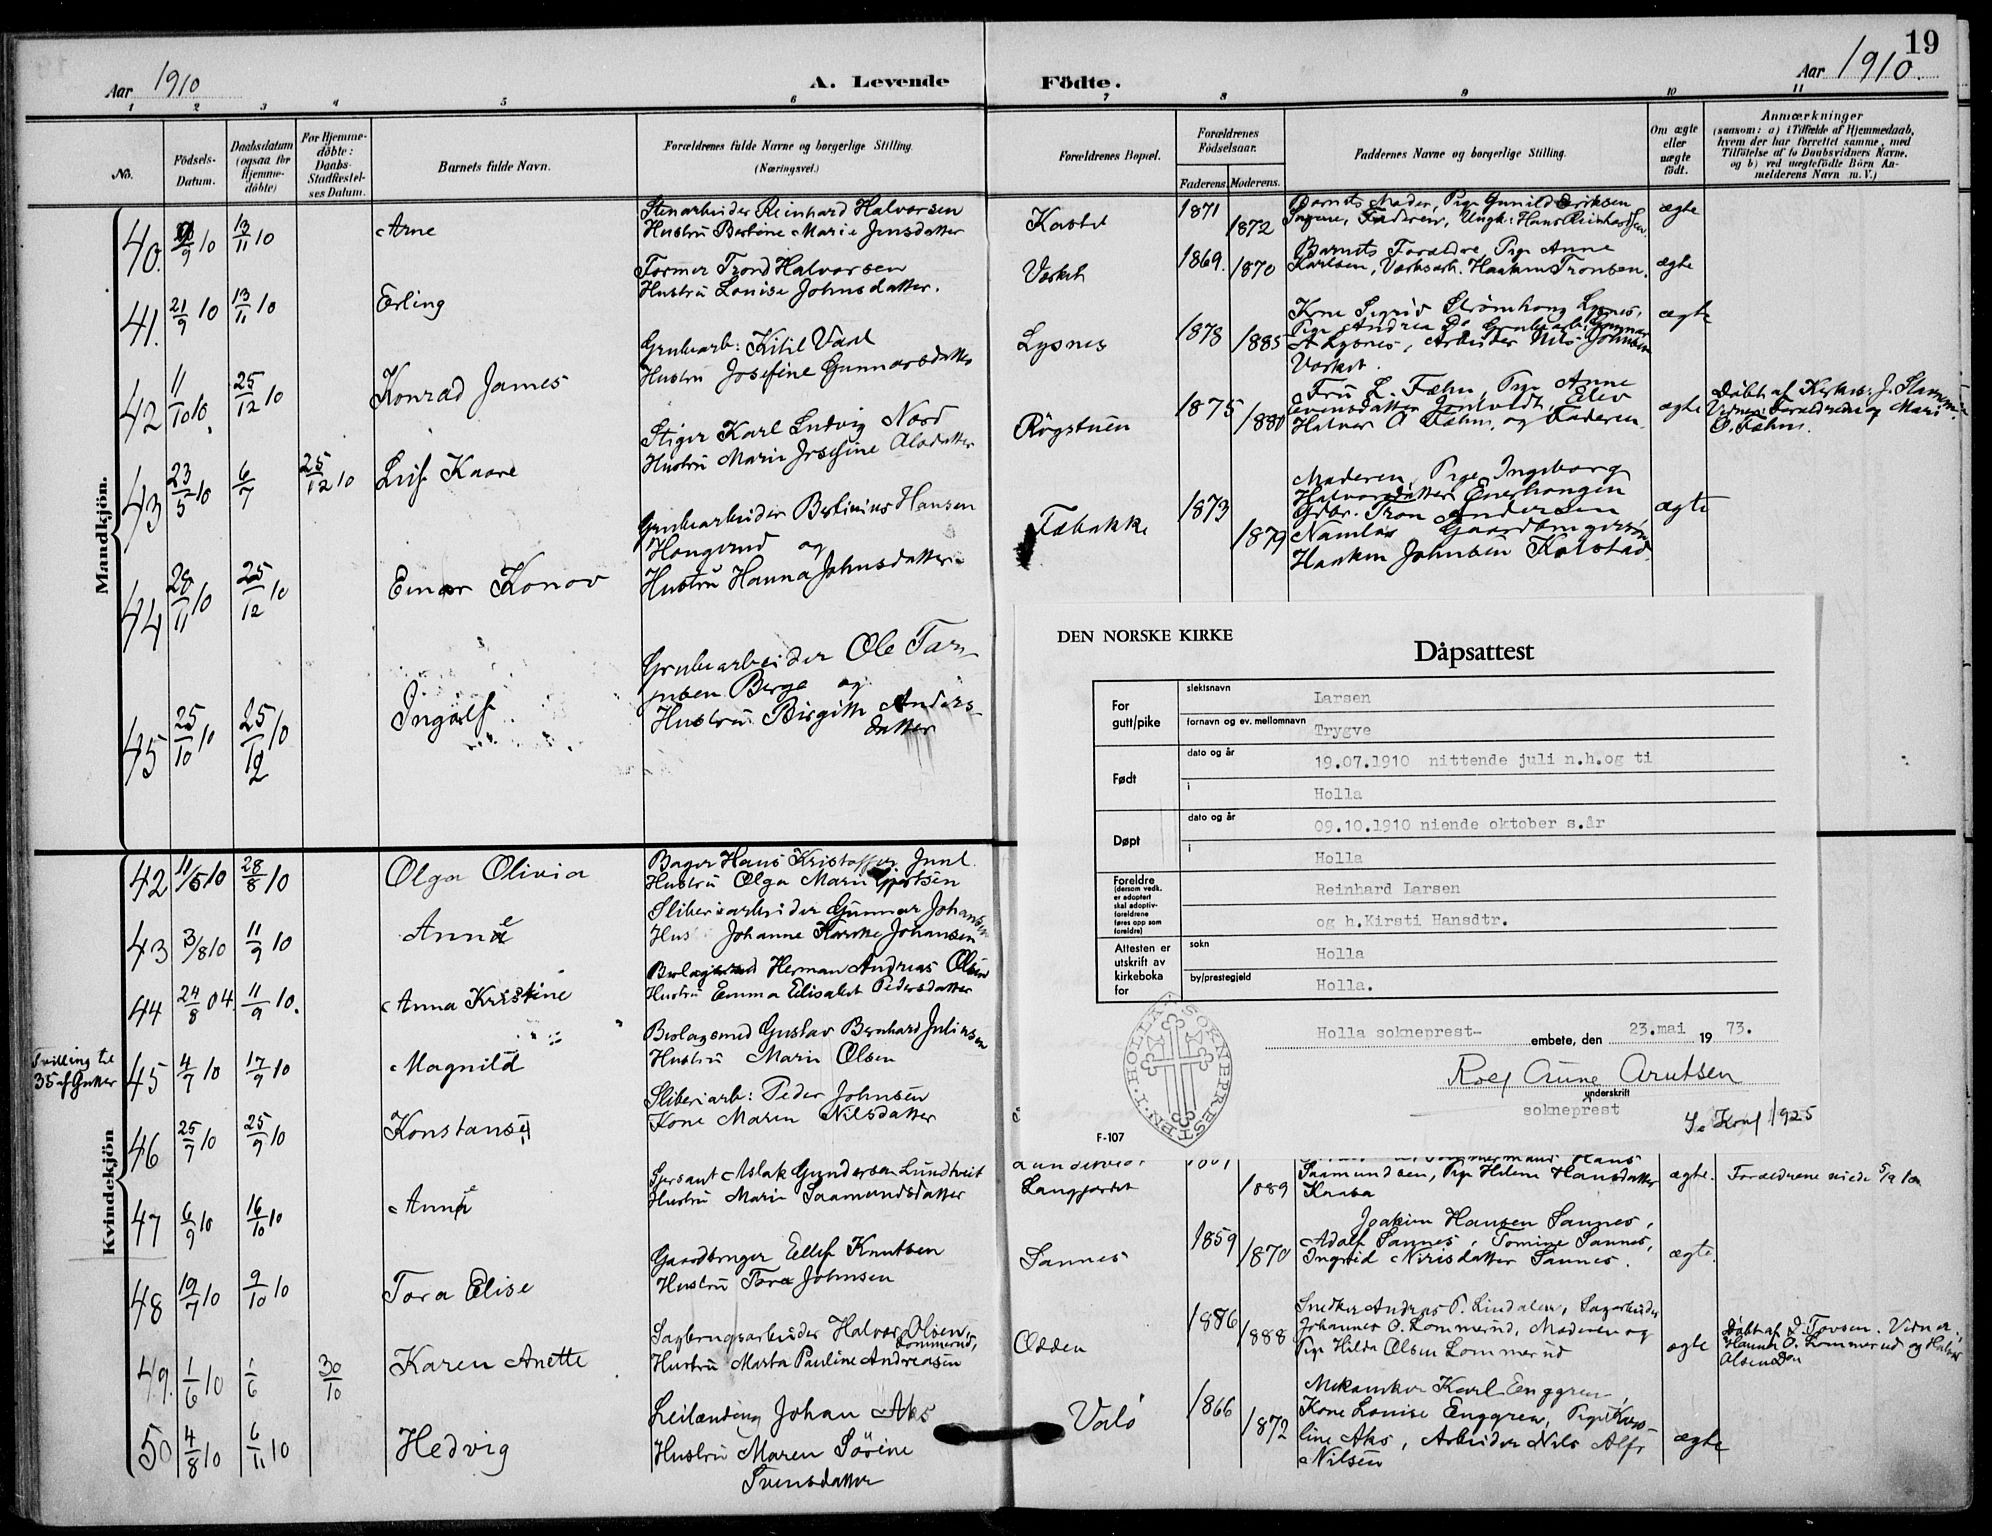 19
Aar 1910
A. Levende Födte.
Aar 1910.
1 2 3 4 5 6 7 8 9 10 11
No.
Födsels-
Datum.
Daabsdatum
(ogsaa for
Hjemme-
döbte)
For Hjemme-
döbte:
Daabs-
Stadfæstel-
ses Datum.
Barnets fulde Navn.
Forældrenes fulde Navne og borgerlige Stilling.
(Næringsvei.)
Forældrenes Bopæl.
Forældrenes
Födselsaar.
Faderens. Moderens.
Faddernes Navne og borgerlige Stilling.
Om ægte
eller
uægte
født.
Anmærkninger
(saasom: a) i Tilfælde af Hjemmedaab,
hvem der har forrettet samme, med
Tilföielse af to Daabsvidners Navne.
og b) ved uægtefödte Börn An-
melderens Navn m. V.)
Mandkjön.
40. /9 10 13/11 10 Arne
Stenarbeider Reinhard Halvorsen
Hustru Bertine Marie Jensdatter
1871 1872
Barnets Moder, Pige Gunild Eriksen
ægte
41. 21/9 10 13/11 10 Erling
Former Trond Halvorsen
Hustru Louise Johnsdatter.
Værket 1869. 1870
Barnets Forældre, Pige Anne
Karlsen, Værksarb. Haaken Tronsen.
ægte
42 11/10 10. 25/12 10 Konrad James
Grubearb: Kitil Vaal
Hustru Josefine Gunnarsdatter
Lysnes 1878 1885
Kone Sigrid Strømhaug Lysnes,
Pige Andrea Do Grubearb. Gunnar
A Lysnes, Arbeider Nils Johnsen
Værket.
ægte
43 23/5 10 6/7 25/12 10 Leif Kaare
Stiger Karl Ludvig Nord
Hustru Marie Josefine Olsdatter
Røgstuen 1875 1880
Fru L. Fæhn, Pige Anne
Halvor O Fæhn. og Faderen.
ægte
Døbt af Kirkes. J.
Vidner: Forældrene og Mari
O. Fæhn.
44 28/11 10 25/12 10 Einar Konov
Grubearbeider Bertinius Hansen
Haugerud og
Hustru Hanna Johnsdatter
Fæbakke 1873 1879
Moderen, Pige Ingeborg
Halvorsdatter Enerhaugen
Gdbr. Tron Andersen
Namløs Gaardbrugersøn
Haaken Johnsen Kolstad
ægte
45 25/10 10 25/12 10 Ingolf
Grubearbeider Ole Tar-
jusen Berge og
Hustru Birgitte Anders-
datter
DEN NORSKE KIRKE
Dåpsattest
For
gutt/pike
slektsnavn
Larsen
fornavn og ev. mellomnavn
Trygve
Født
dato og år
19.07.1910 nittende juli n.h.og ti
i
Holla
Døpt
dato og år
09.10.1910 niende oktober s.år
i
Holla
Foreldre
(dersom vedk.
er adoptert
skal adoptiv-
foreldrene
føres opp som
foreldre)
Reinhard Larsen
og h.Kirsti Hansdtr.
Attesten er
utskrift av
kirkeboka
for
sokn
Holla
by/prestegjeld
Holla.
Holla sokneprest-
embete, den 23.mai 19 73.
Rolf Aune Arntsen
underskrift
sokneprest
SOKNEPRESTEN I HOLLA
Se Konf 1925
F-107
Kvindekjön
42 11/5 10 28/8 10 Olga Olivia
Bager Hans Kristoffer Juul
Hustru Olga Marie Gjertsen
43 3/8 10 11/9 10 Anne
Sliberiarbeider Gunnar Johansen
Hus Johanne Johansen
44 24/8 04. 11/9 10. Anna Kristine
Bolagsmed Herman Andreas Olsen
Hustru Emma Elisabet Pedersdatter
Tvilling til
35 af Gutter
45 4/7 10 17/9 10 Magnild
Bolagsmed Gustav Bernhard Juliusen
Hustru Marie Olsen
46 25/7 10 25/9 10 Konstanse
Sliberiarb: Peder Johnsen
Kone Maren Nilsdatter
47 6/9 10 16/10 10 Anne
Sersant Aslak Gundersen Lundtveit
Hustru Marie Saamundsdatter
Langfjordet 1889
Saamundsen, Pige Helene Hansdatter
Kaasa
ægte.
Forældrene viede
48 19/7 10 9/10 10 Tora Elise
Gaardbruger Ellef Knutsen
Hustru Tora Johnsen
Sannes 1859 1870
Joakim Hansen Sannes,
Adolf Sannes, Tomine Sannes,
Ingrid Nirisdatter Sannes.
ægte.
49. 1/6 10 1/6 30/10 Karen Anette
Sagbrugsarbeider Halvor Olsen
Lommerud,
Hustru Marta Pauline Andreasen
Odden 1886 1888
Snedker Andreas P. Lindalen, Sagarbeider
Johannes O. Lommerud, Moderen og
Pige Hilda Olsen Lommerud
ægte
Døbt af J. Tovsen. Vidner,
Hanna O. Lommerud og Halvor
Olsen Do
50 4/8 10 6/11 10 Hedvig
Leilænding Johan Aks
Hustru Maren Sörine
Svensdatter
Valö 1866 1872
Mekaniker Karl Enggren,
Kone Louise Enggren, Pige Karo-
line Aks, Arbeider Nils Alfr
Nilsen
ægte